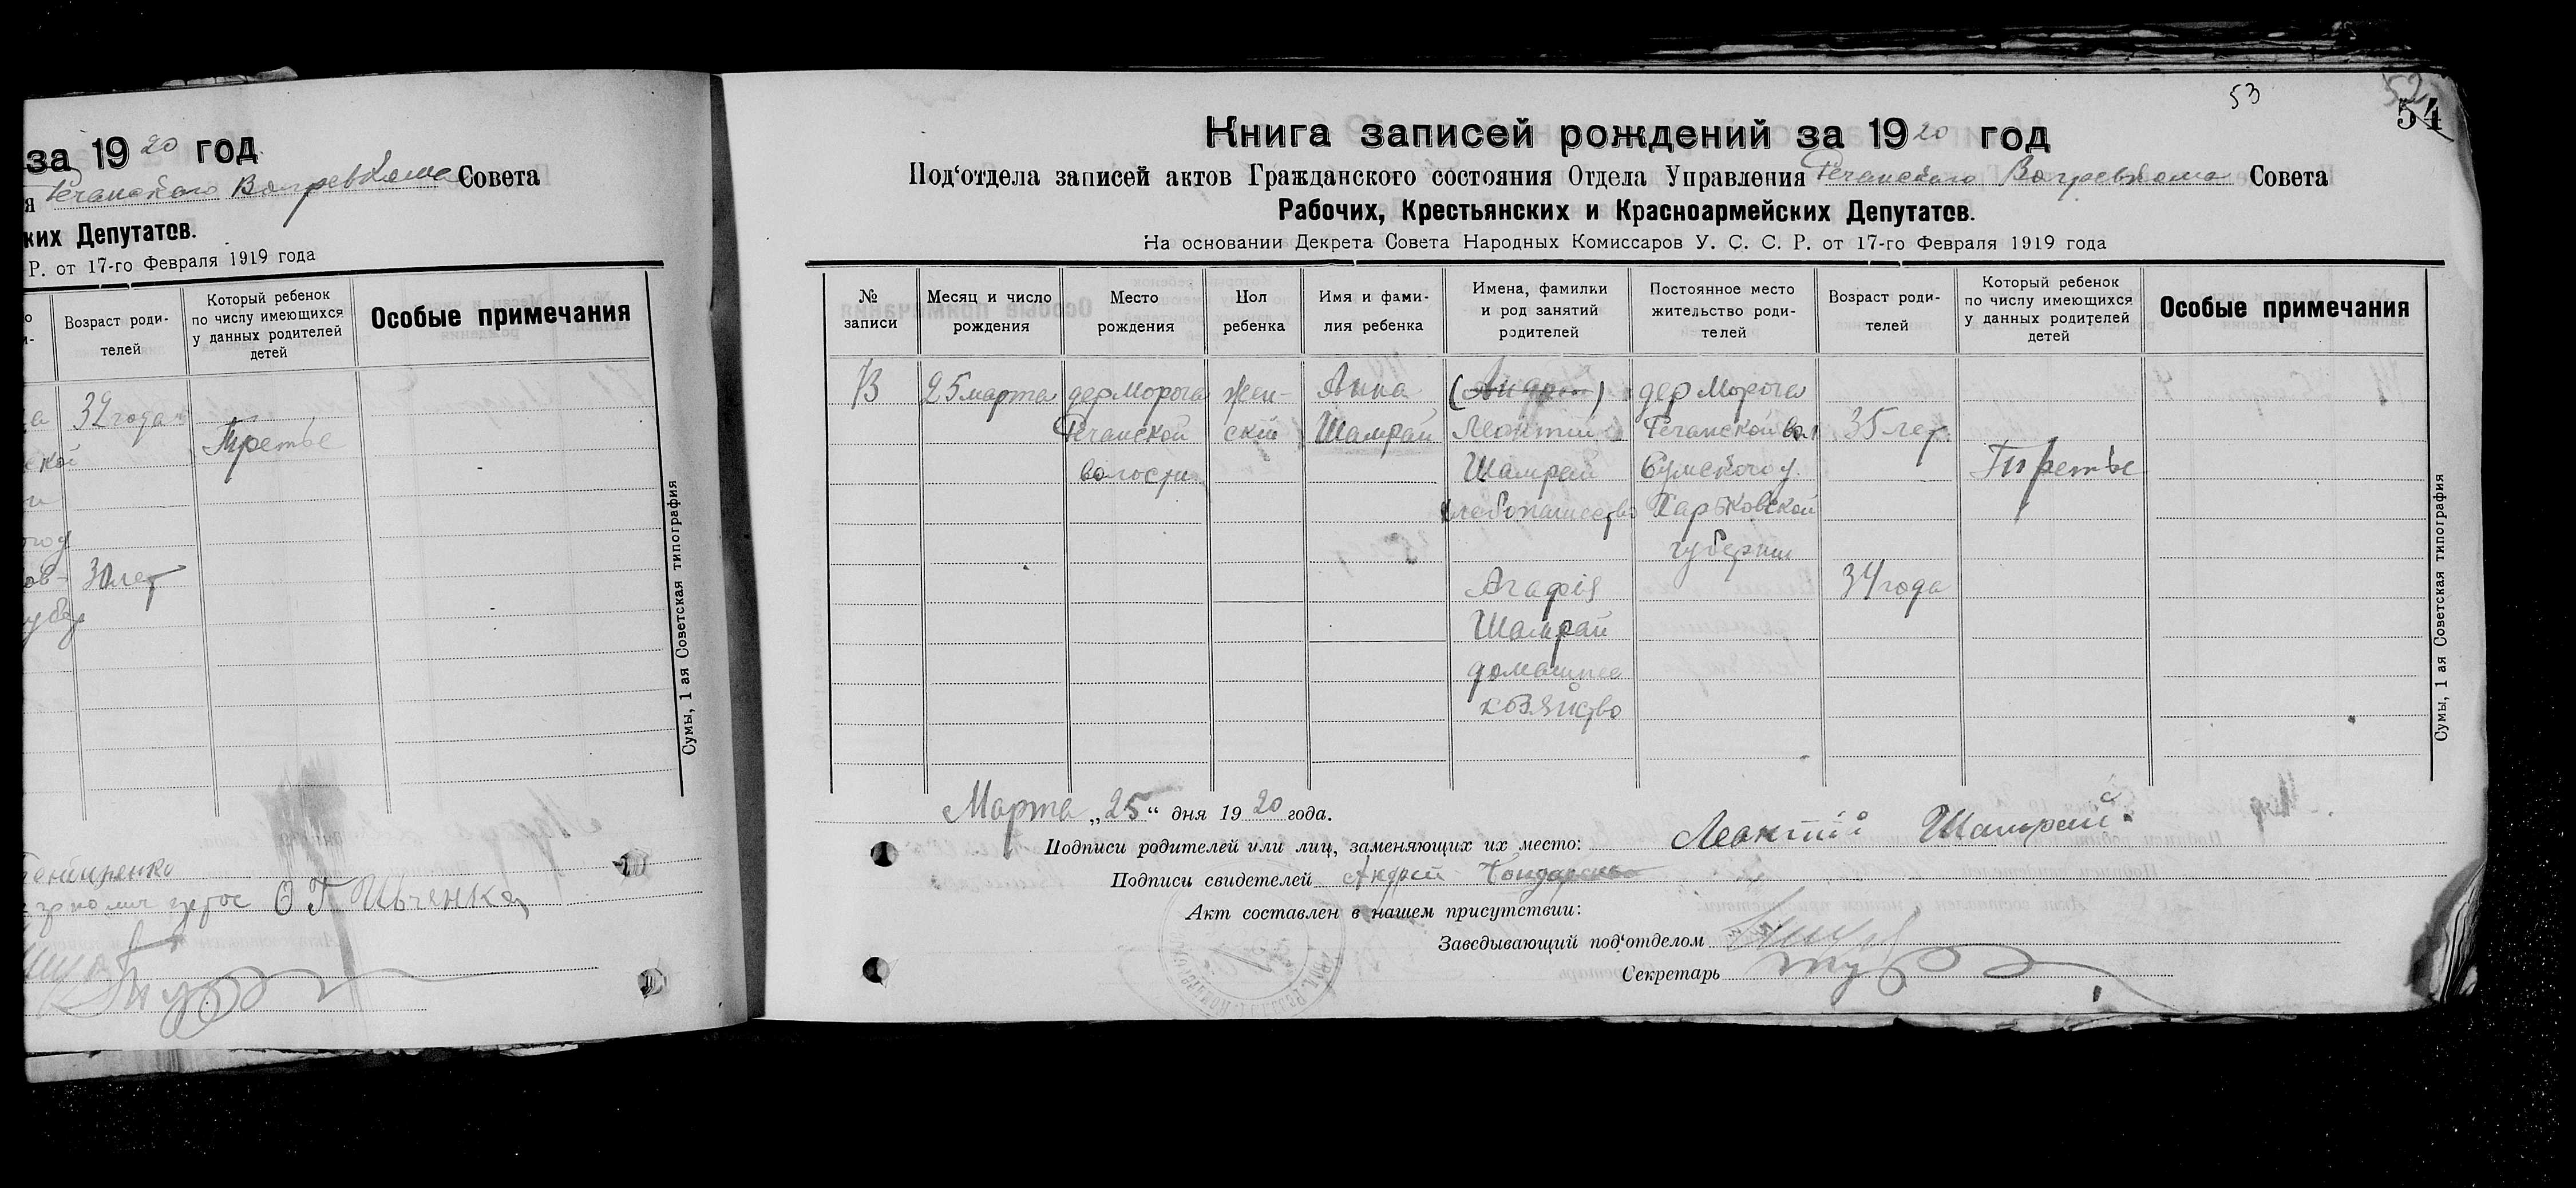 за 1920 год
я Речанского Волревкома Совета
ких Депутатов.
Р. от 17-го Февраля 1919 года
Возраст роди-
телей
Который ребенок
по числу имеющихся
у данных родителей
детей
Особые примечания
32 года
Третье
ской
30 лет
Сумы, 1 ая Советская типография
О Г Ивченко
53
52
54
Книга записей рождений за 1920 год
Под‘отдела записей актов Гражданского состояния Отдела Управления Речанского Волревкома Совета
Рабочих, Крестьянских и Красноармейских Депутатов.
На основании Декрета Совета Народных Комиссаров У. С. С. Р. от 17-го Февраля 1919 года
№
записи
Месяц и число
рождения
Место
рождения
Пол
ребенка
Имя и фами-
лия ребенка
Имена, фамилии
и род занятий
родителей
Постоянное место
жительство роди-
телей
Возраст роди-
телей
Который ребенок
по числу имеющихся
у данных родителей
детей
Особые примечания
13
25 марта
дер Мороча
Речанской
волости
жен-
скій
Анна
Шамрай
(Андрей)
Леонтий
Шамрай
хлебопашество
Агафія
Шамрай
домашнее
хозяйство
дер Мороча
Речанской вол
Сумского у.
Харьковской
губернии
35 лет
34 года
Третье
Сумы, 1 ая Советская типография
Марта „25“ дня 1920 года.
Подписи родителей или лиц, заменяющих их место: Леонтій Шамрай
Подписи свидетелей Андрей Бондаренко
Акт составлен в нашем присутствии:
Заведывающий под‘отделом
Секретарь